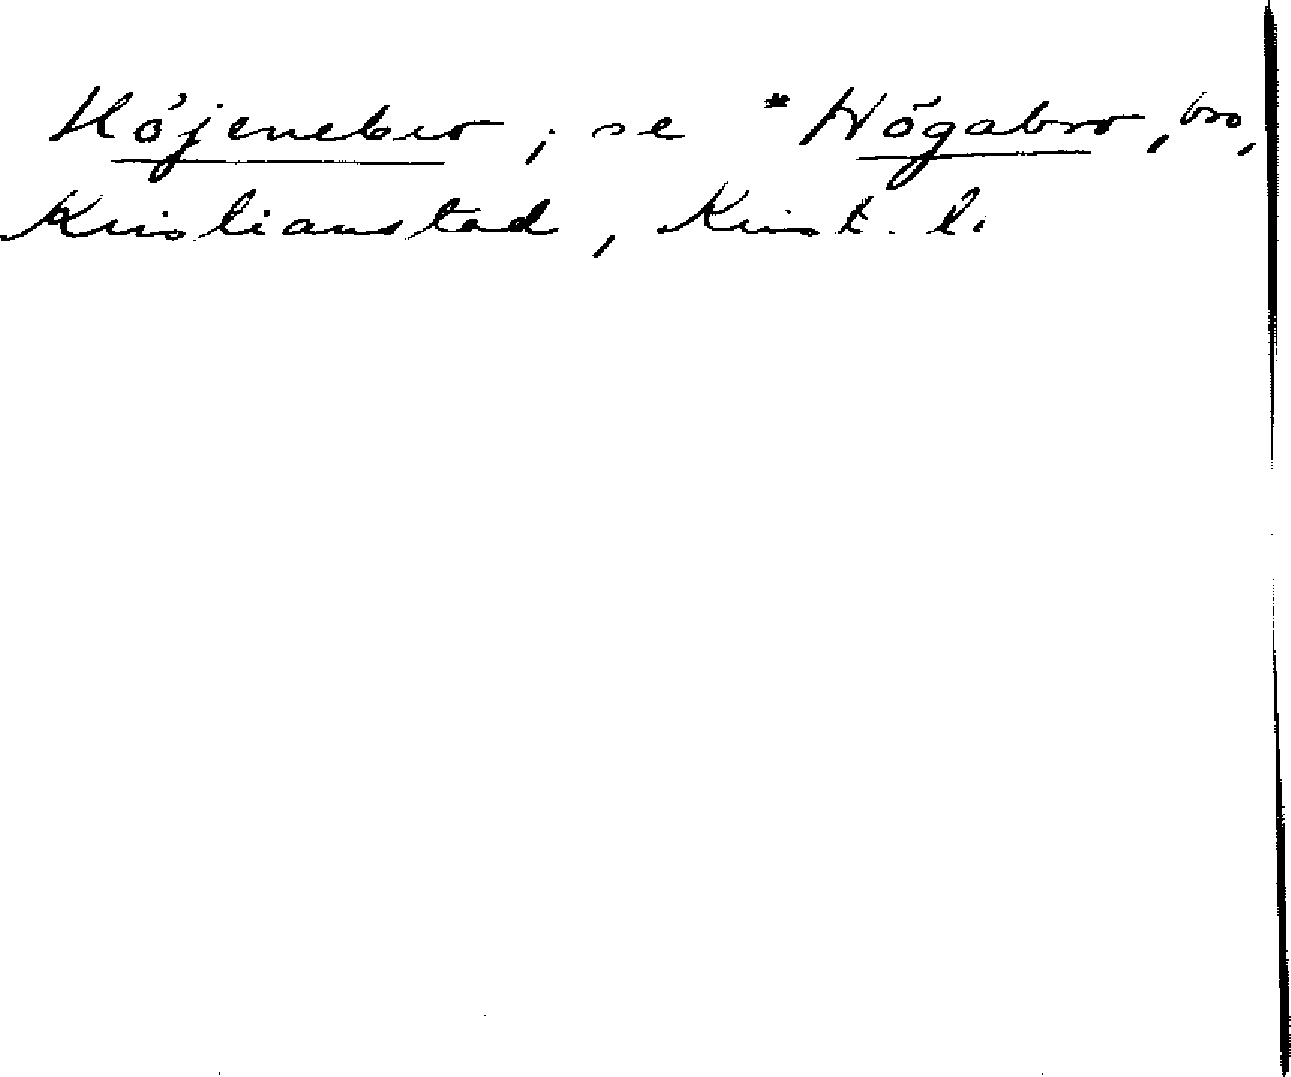 Höjenebro, se *Högabro, bro,
Kristianstad, Krist. l.